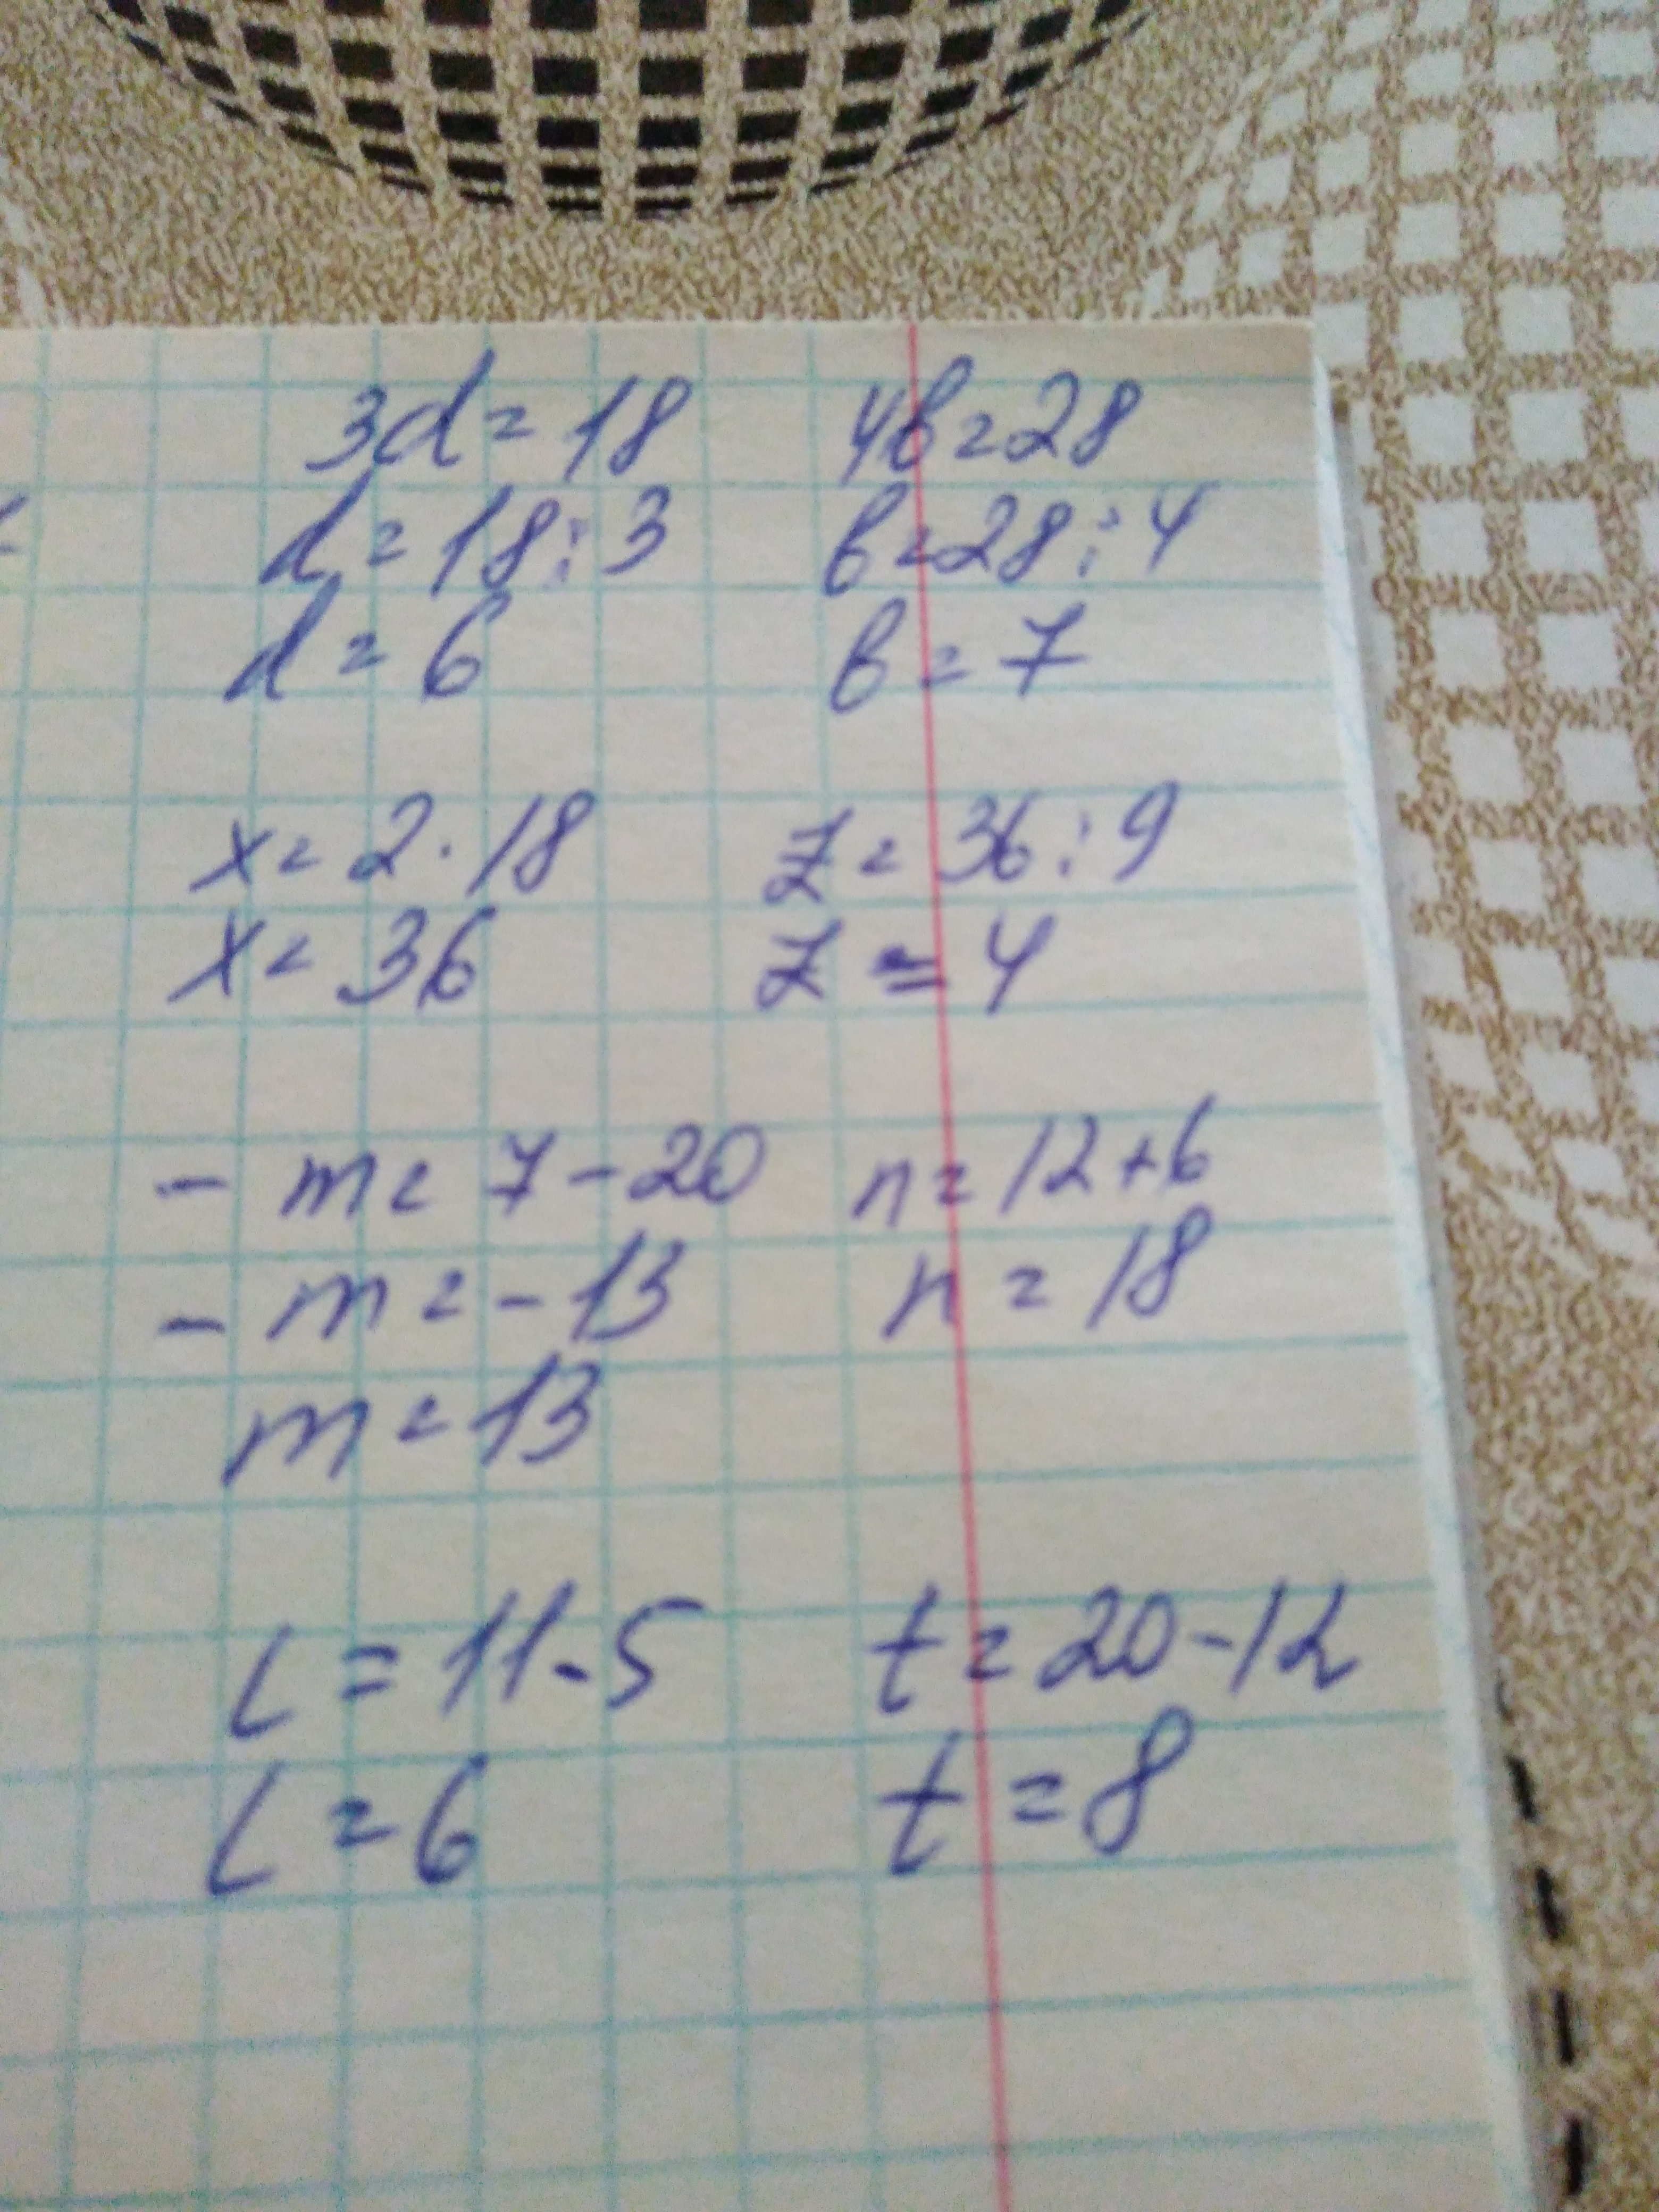 3d = 18 4b = 28
d = 18 : 3 b = 28 : 4
d = 6 b = 7
x = 2 · 18 z = 36 : 9
x = 36 z = 4
- m = 7 - 20 n = 12 + 6
- m = - 13 n = 18
m = 13
l = 11 - 5 t = 20 - 12
l = 6 t = 8